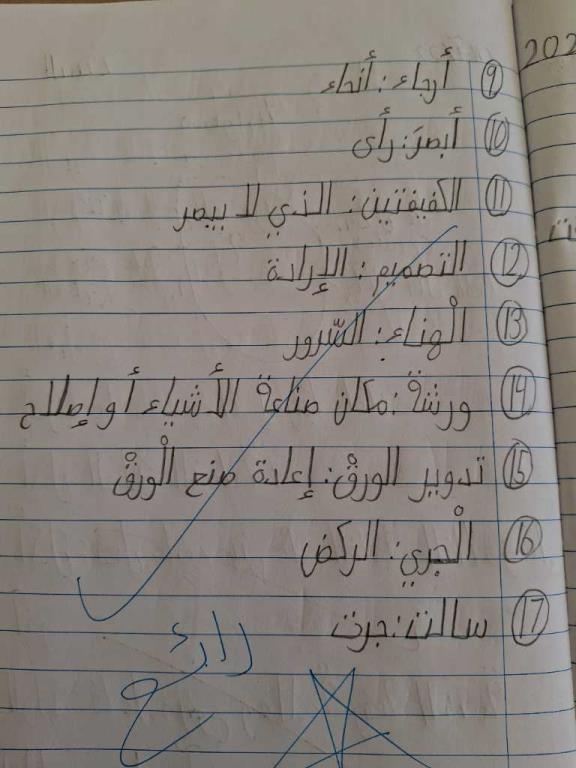 202
⑨ أرجاء : أنحاء
⑩ أبصرَ : رأى
⑪ الكفيفتين : الذي لا يبصر
⑫ التصميم : الإرادة
⑬ الْهناء : السّرور
⑭ ورشة : مكان صناعة الأشياء أو إصلاح
⑮ تدوير الورقْ : إعادة صنع الْورقْ
⑯ الْجري : الركض
⑰ سالت : جرت
رائع